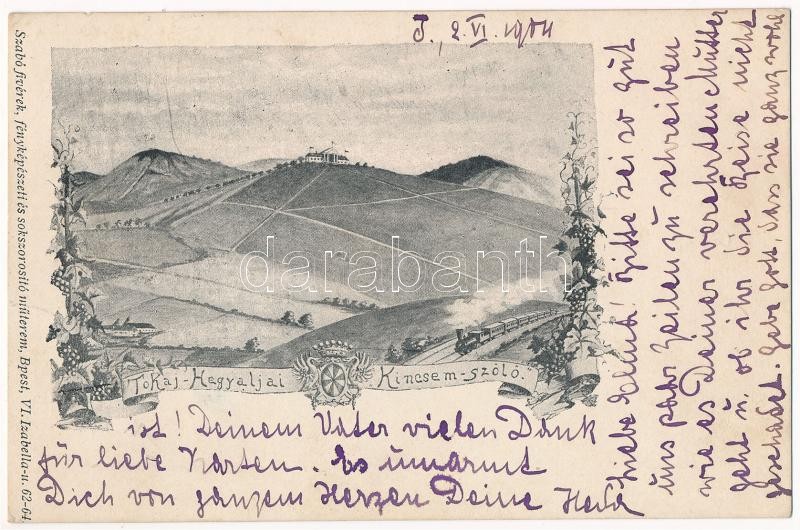 T., 2. VI. 1904
Szabó fivérek, fényképészeti és sokszorositó műterem, Bpest, VI. Izabella-u. 62-64.
darabanth
Tokaj-Hegyaljai Kincsem-szőlő.
Liebe! Bitte sei so gut
uns paar Zeilen zu schreiben
wie es Deiner verehrten Mutter
geht u. ob ihr die Reise nicht
geschadet. Gebe Gott, dass sie ganz wohl
ist! Deinem Vater vielen Dank
für liebe Karten. Es umarmt
Dich von ganzem Herzen Deine